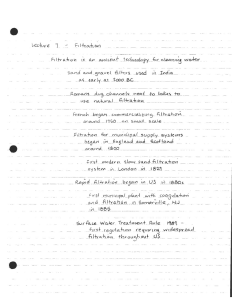 Lecture 7 - Filtration
Filtration is an ancient technology for cleaning water
Sand and gravel filters used in India
as early as 2000 BC
Romans dug channels next to lakes to
use natural filtration
French began commercializing filtration
around 1750 on small scale
Filtration for municipal supply systems
began in England and Scotland
around 1800
First modern slow sand filtration
system in London at 1829
Rapid filtration began in US in 1880s
First municipal plant with coagulation
and filtration in Somerville, NJ
in 1885
Surface Water Treatment Rule 1989 -
first regulation requiring widespread
filtration throughout US